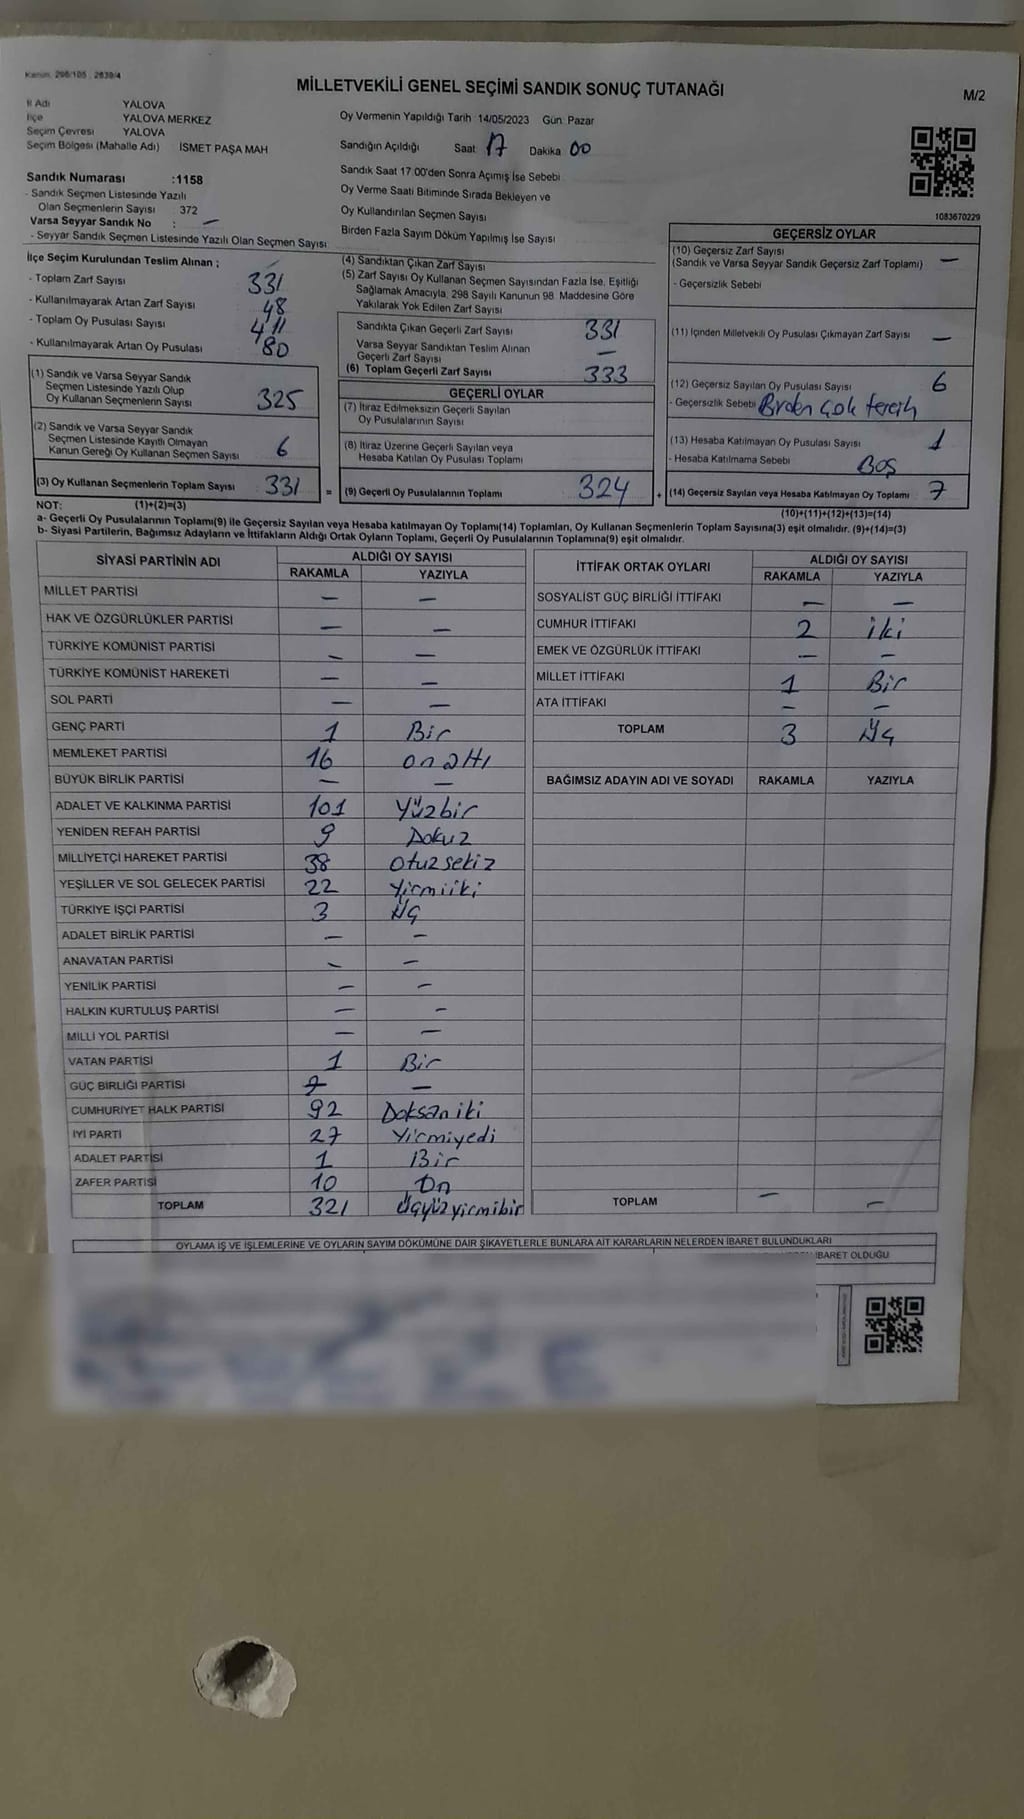 Kanun: 298/105 , 2839/4
MİLLETVEKİLİ GENEL SEÇİMİ SANDIK SONUÇ TUTANAĞI
M/2
İl Adı YALOVA
İlçe YALOVA MERKEZ
Seçim Çevresi YALOVA
Seçim Bölgesi (Mahalle Adı) İSMET PAŞA MAH
Sandık Numarası :1158
- Sandık Seçmen Listesinde Yazılı
Olan Seçmenlerin Sayısı 372
Varsa Seyyar Sandık No : —
- Seyyar Sandık Seçmen Listesinde Yazılı Olan Seçmen Sayısı
Oy Vermenin Yapıldığı Tarih 14/05/2023 Gün: Pazar
Sandığın Açıldığı Saat 17 Dakika 00
Sandık Saat 17.00'den Sonra Açımış İse Sebebi
Oy Verme Saati Bitiminde Sırada Bekleyen ve
Oy Kullandırılan Seçmen Sayısı
Birden Fazla Sayım Döküm Yapılmış İse Sayısı
1083670229
İlçe Seçim Kurulundan Teslim Alınan ;
- Toplam Zarf Sayısı 331
- Kullanılmayarak Artan Zarf Sayısı 48
- Toplam Oy Pusulası Sayısı 411
- Kullanılmayarak Artan Oy Pusulası 80
(1) Sandık ve Varsa Seyyar Sandık
Seçmen Listesinde Yazılı Olup
Oy Kullanan Seçmenlerin Sayısı 325
(2) Sandık ve Varsa Seyyar Sandık
Seçmen Listesinde Kayıtlı Olmayan
Kanun Gereği Oy Kullanan Seçmen Sayısı 6
(3) Oy Kullanan Seçmenlerin Toplam Sayısı 331 =
(4) Sandıktan Çıkan Zarf Sayısı
(5) Zarf Sayısı Oy Kullanan Seçmen Sayısından Fazla İse, Eşitliği
Sağlamak Amacıyla, 298 Sayılı Kanunun 98. Maddesine Göre
Yakılarak Yok Edilen Zarf Sayısı
Sandıkta Çıkan Geçerli Zarf Sayısı 331
Varsa Seyyar Sandıktan Teslim Alınan
Geçerli Zarf Sayısı —
(6) Toplam Geçerli Zarf Sayısı 333
GEÇERLİ OYLAR
(7) İtiraz Edilmeksizin Geçerli Sayılan
Oy Pusulalarının Sayısı
(8) İtiraz Üzerine Geçerli Sayılan veya
Hesaba Katılan Oy Pusulası Toplamı
(9) Geçerli Oy Pusulalarının Toplamı 324 +
GEÇERSİZ OYLAR
(10) Geçersiz Zarf Sayısı
(Sandık ve Varsa Seyyar Sandık Geçersiz Zarf Toplamı) —
- Geçersizlik Sebebi
(11) İçinden Milletvekili Oy Pusulası Çıkmayan Zarf Sayısı —
(12) Geçersiz Sayılan Oy Pusulası Sayısı 6
- Geçersizlik Sebebi Birden çok tercih
(13) Hesaba Katılmayan Oy Pusulası Sayısı 1
- Hesaba Katılmama Sebebi Boş
(14) Geçersiz Sayılan veya Hesaba Katılmayan Oy Toplamı 7
NOT: (1)+(2)=(3) (10)+(11)+(12)+(13)=(14)
a- Geçerli Oy Pusulalarının Toplamı(9) ile Geçersiz Sayılan veya Hesaba katılmayan Oy Toplamı(14) Toplamları, Oy Kullanan Seçmenlerin Toplam Sayısına(3) eşit olmalıdır. (9)+(14)=(3)
b- Siyasi Partilerin, Bağımsız Adayların ve İttifakların Aldığı Ortak Oyların Toplamı, Geçerli Oy Pusulalarının Toplamına(9) eşit olmalıdır.
SİYASİ PARTİNİN ADI ALDIĞI OY SAYISI
RAKAMLA YAZIYLA
MİLLET PARTİSİ — —
HAK VE ÖZGÜRLÜKLER PARTİSİ — —
TÜRKİYE KOMÜNİST PARTİSİ — —
TÜRKİYE KOMÜNİST HAREKETİ — —
SOL PARTİ — —
GENÇ PARTİ 1 Bir
MEMLEKET PARTİSİ 16 onaltı
BÜYÜK BİRLİK PARTİSİ — —
ADALET VE KALKINMA PARTİSİ 101 Yüzbir
YENİDEN REFAH PARTİSİ 9 Dokuz
MİLLİYETÇİ HAREKET PARTİSİ 38 otuzsekiz
YEŞİLLER VE SOL GELECEK PARTİSİ 22 Yirmiiki
TÜRKİYE İŞÇİ PARTİSİ 3 Üç
ADALET BİRLİK PARTİSİ — —
ANAVATAN PARTİSİ — —
YENİLİK PARTİSİ — —
HALKIN KURTULUŞ PARTİSİ — —
MİLLİ YOL PARTİSİ — —
VATAN PARTİSİ 1 Bir
GÜÇ BİRLİĞİ PARTİSİ —
CUMHURİYET HALK PARTİSİ 92 Doksaniki
İYİ PARTİ 27 Yirmiyedi
ADALET PARTİSİ 1 Bir
ZAFER PARTİSİ 10 On
TOPLAM 321 Üçyüzyirmibir
İTTİFAK ORTAK OYLARI ALDIĞI OY SAYISI
RAKAMLA YAZIYLA
SOSYALİST GÜÇ BİRLİĞİ İTTİFAKI — —
CUMHUR İTTİFAKI 2 iki
EMEK VE ÖZGÜRLÜK İTTİFAKI — —
MİLLET İTTİFAKI 1 Bir
ATA İTTİFAKI — —
TOPLAM 3 Üç
BAĞIMSIZ ADAYIN ADI VE SOYADI RAKAMLA YAZIYLA
TOPLAM — —
OYLAMA İŞ VE İŞLEMLERİNE VE OYLARIN SAYIM DÖKÜMÜNE DAİR ŞİKAYETLERLE BUNLARA AİT KARARLARIN NELERDEN İBARET BULUNDUKLARI
İBARET OLDUĞU